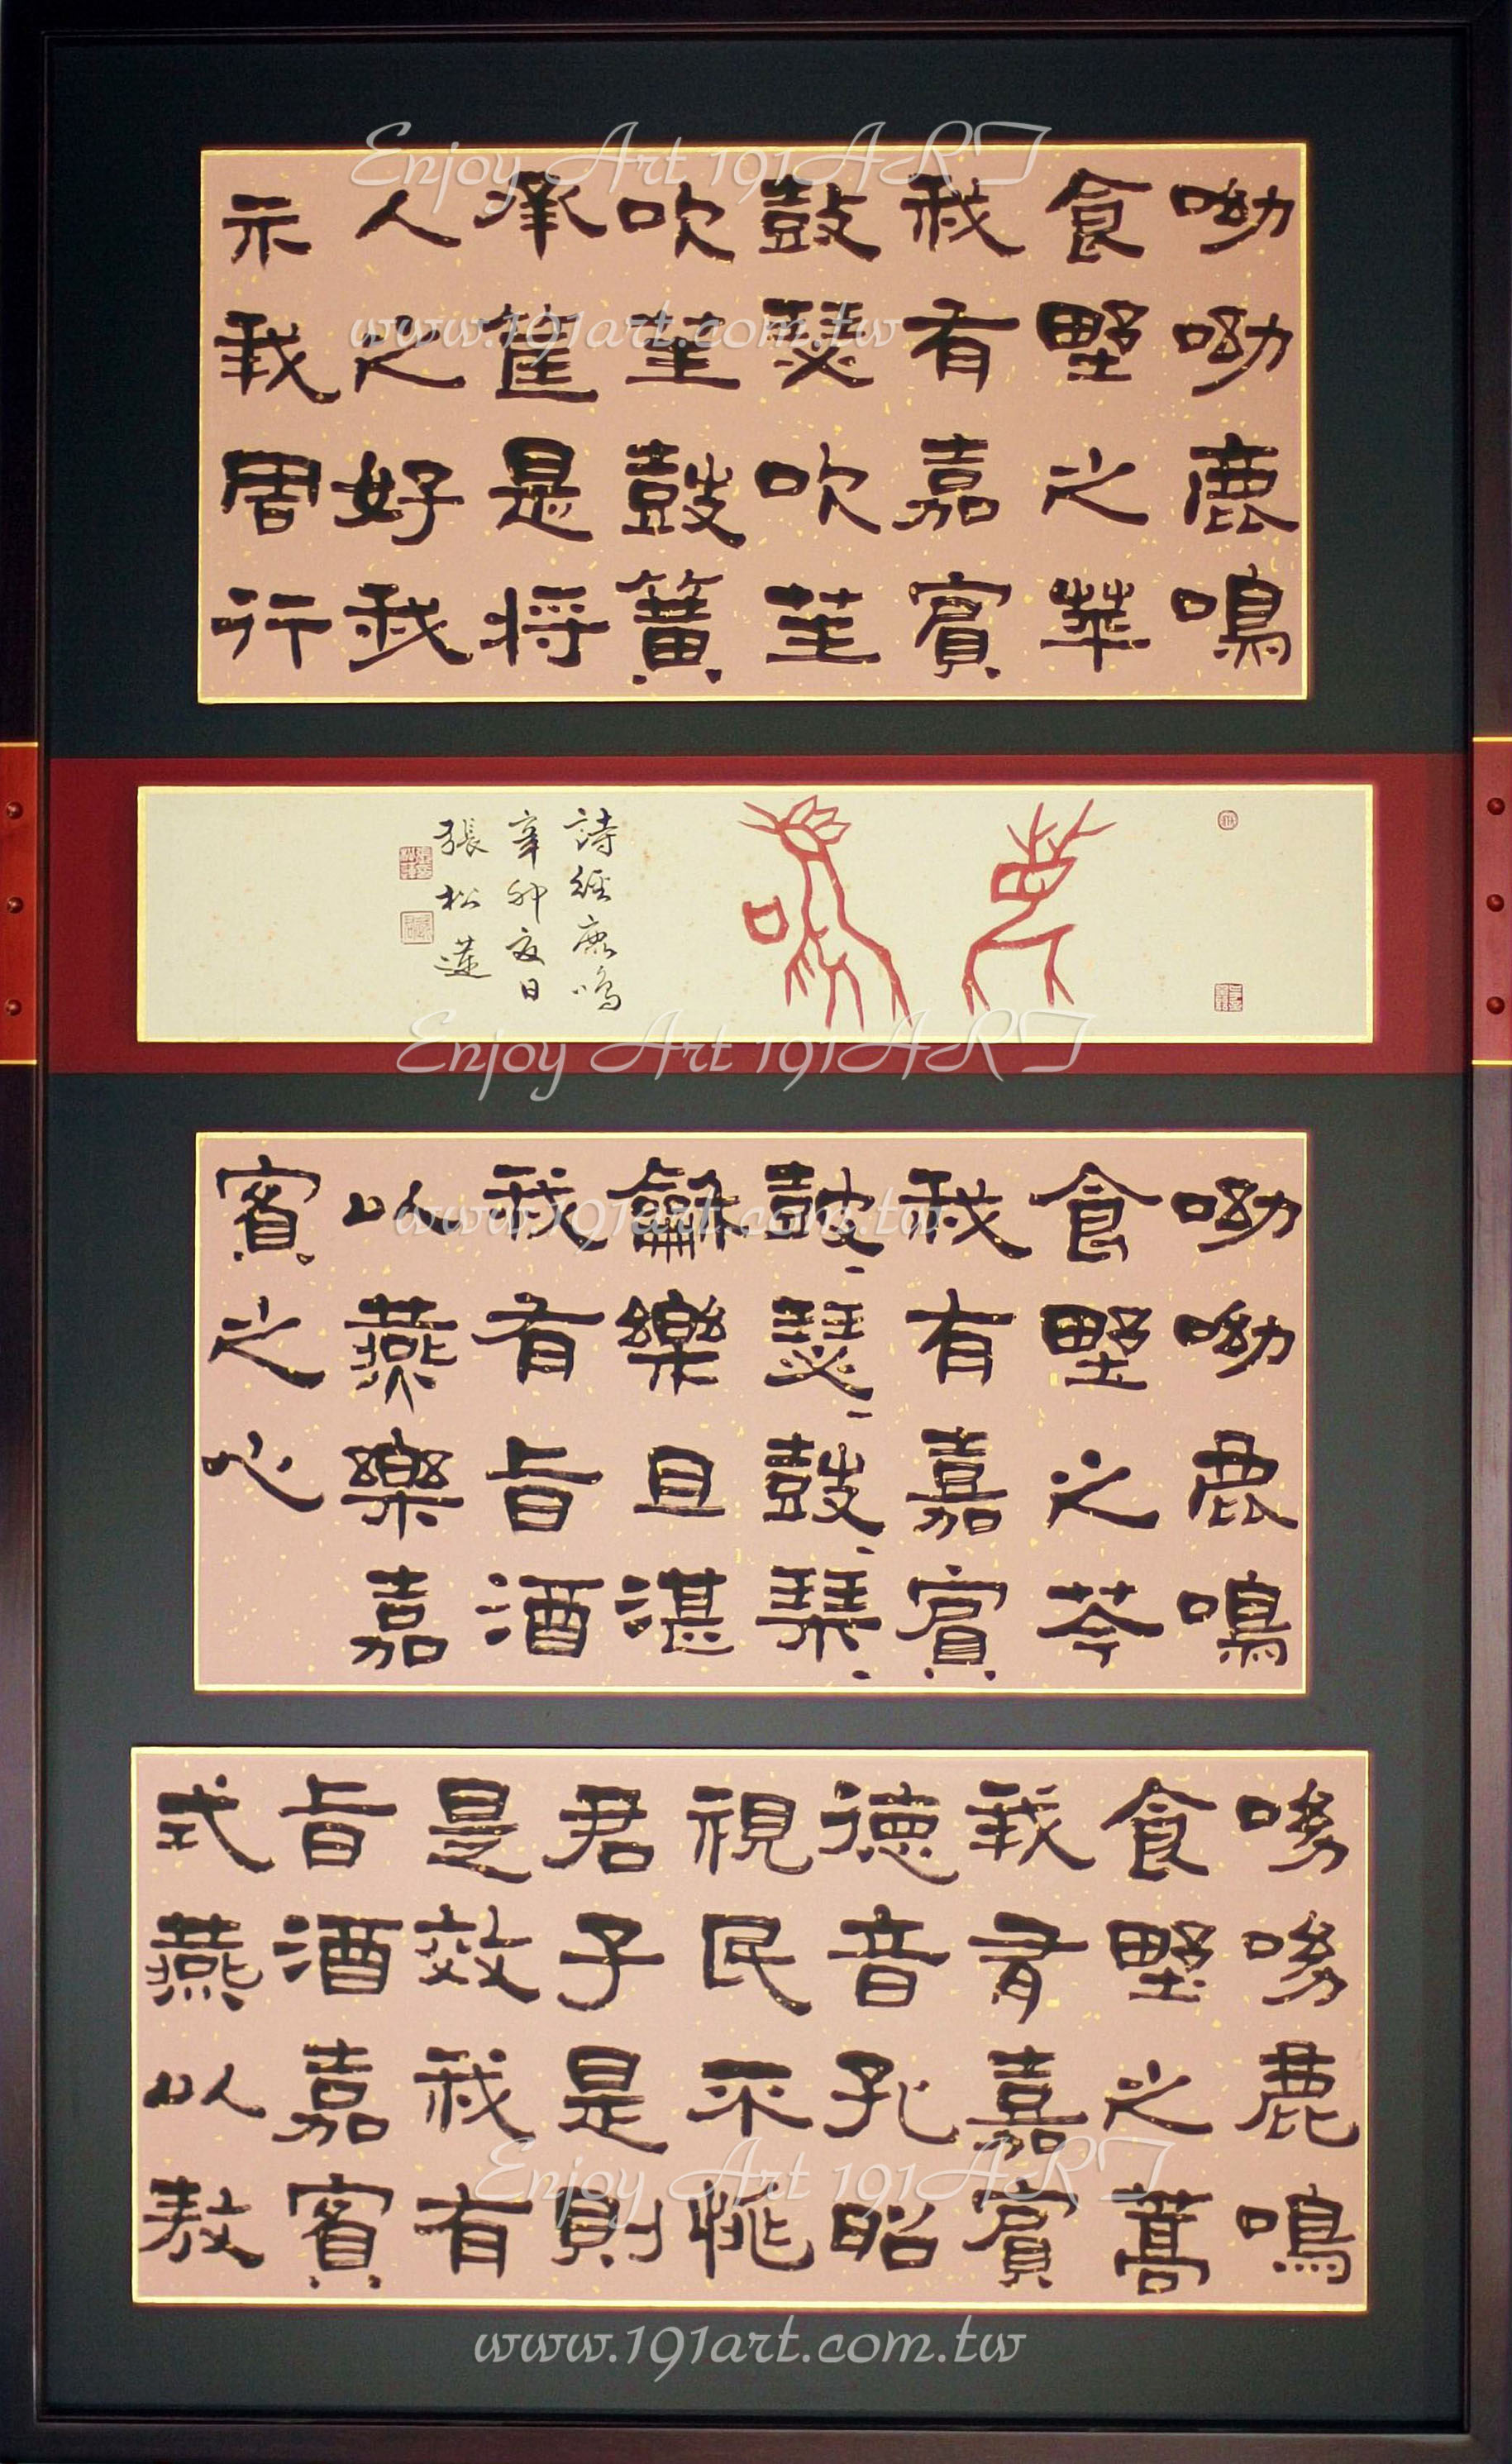 Enjoy Art 191ART
呦呦鹿鳴
食野之苹
我有嘉賓
鼓瑟吹笙
吹笙鼓簧
承筐是將
人之好我
示我周行
www.191art.com.tw
鹿鳴
詩經鹿鳴
辛卯夏日
張松蓮
Enjoy Art 191ART
呦呦鹿鳴
食野之芩
我有嘉賓
鼓瑟鼓琴
龢樂且湛
我有旨酒
以燕樂嘉
賓之心
www.191art.com.tw
呦呦鹿鳴
食野之蒿
我有嘉賓
德音孔昭
視民不恌
君子是則
是效我有
旨酒嘉賓
式燕以敖
Enjoy Art 191ART
www.191art.com.tw